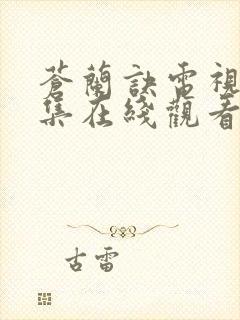 蒼蘭訣電視
集在綫觀看
古雷